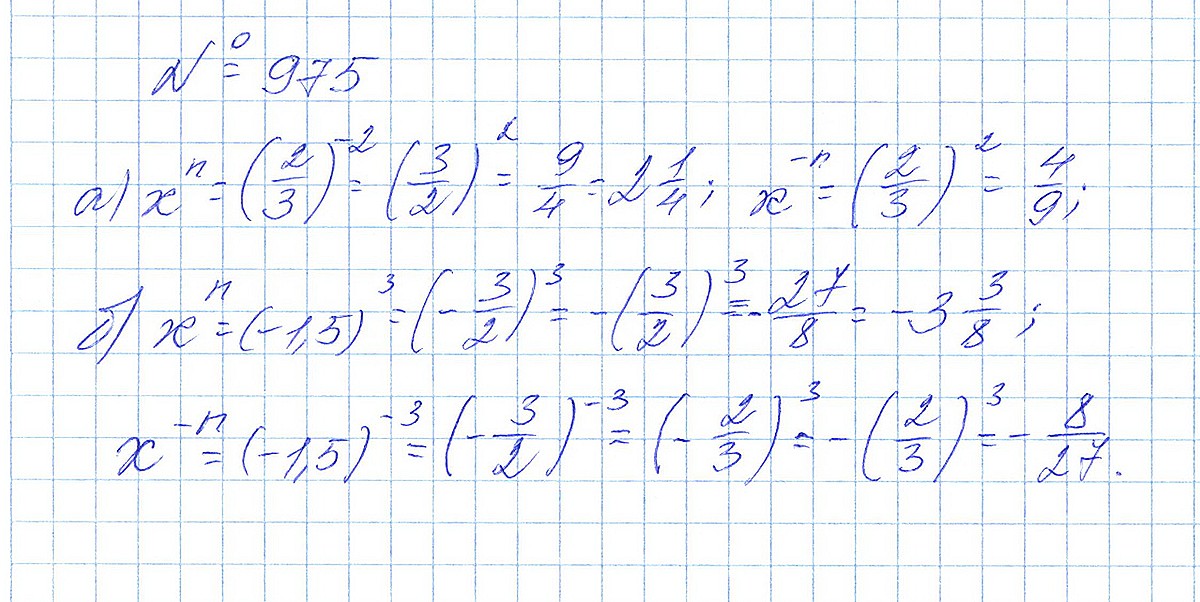 № 975
а) xⁿ = (2/3)⁻² = (3/2)² = 9/4 = 2 1/4; x⁻ⁿ = (2/3)² = 4/9;
б) xⁿ = (-1,5)³ = (-3/2)³ = -(3/2)³ = -27/8 = -3 3/8;
x⁻ⁿ = (-1,5)⁻³ = (-3/2)⁻³ = (-2/3)³ = -(2/3)³ = -8/27.